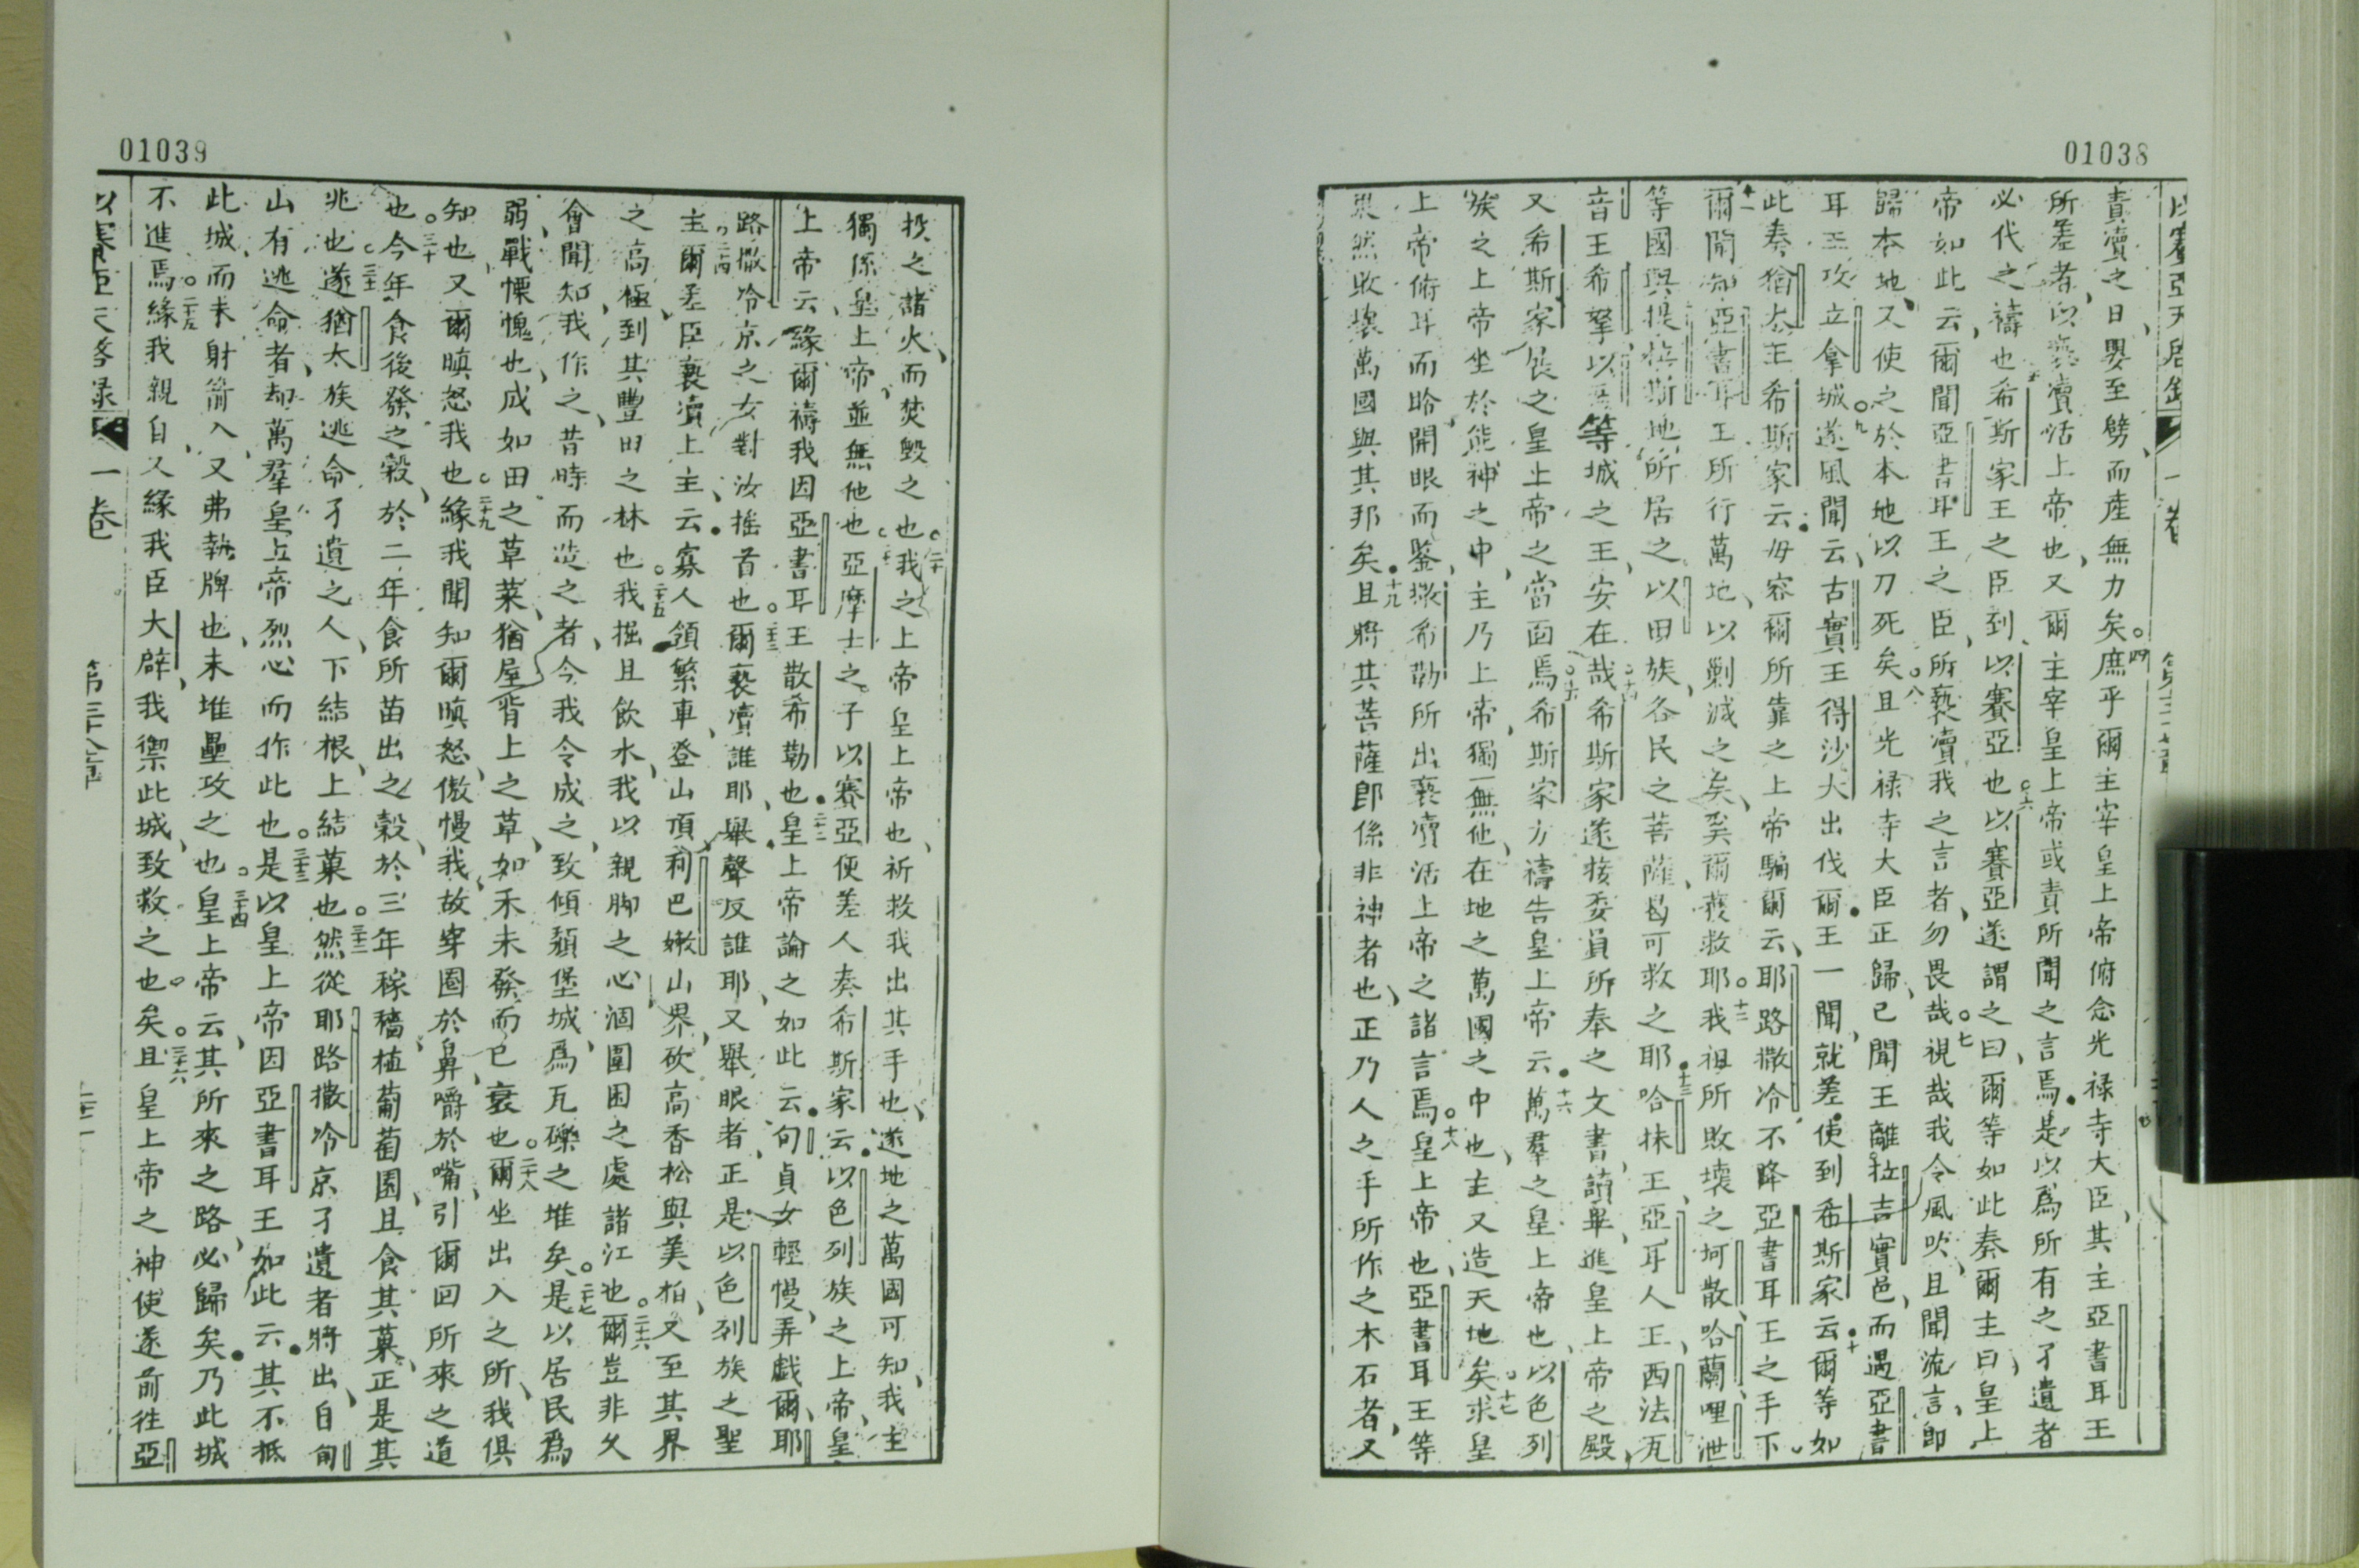 01038
以賽亞天啓錄 一卷
責瀆之日嬰至劈而產無力矣○四庶乎爾主宰皇上帝俯念光禄寺大臣其主亞書耳王
所差者以褻瀆活上帝也又爾主宰皇上帝或責所聞之言焉是以爲所有之孑遺者
必代之禱也五希斯家王之臣到以賽亞也○六以賽亞遂謂之曰爾等如此奏爾主曰皇上
帝如此云爾聞亞書耳王之臣所褻瀆我之言者勿畏哉○七視哉我令風吹且聞流言即
歸本地又使之於本地以刀死矣○八且光禄寺大臣正歸已聞王離拉吉實邑而遇亞書
耳王攻立拿城○九遂風聞云古實王得沙大出伐爾王一聞就差使到希斯家云十爾等如
此奏猶太王希斯家云毋容爾所靠之上帝騙爾云耶路撒冷不降亞書耳王之手下
十一爾聞知亞書耳王所行萬地以剿滅之矣爾獲救耶○十二我祖所敗壞之坷散哈蘭哩泄
等國與提拉斯地所居之以田族各民之菩薩曷可救之耶十三哈抹王亞耳人王西法瓦
音王希拏以等城之王安在哉○十四希斯家遂接委員所奉之文書讀畢進皇上帝之殿
又希斯家展之皇上帝之當面焉○十五希斯家方禱告皇上帝云十六萬羣之皇上帝也以色列
族之上帝坐於熊神之中主乃上帝獨一無他在地之萬國之中也主又造天地矣○十七求皇
上帝俯耳而聆開眼而鑒撒希勒所出褻瀆活上帝之諸言焉○十八皇上帝也亞書耳王等
果然敗壞萬國與其邦矣十九且將其菩薩即係非神者也正乃人之手所作之木石者又
01039
投之諸火而焚毀之也○二十我之上帝皇上帝也祈救我出其手也遂地之萬國可知我主
獨係皇上帝並無他也亞摩士之子以賽亞便差人奏希斯家云以色列族之上帝皇
上帝云緣爾禱我因亞書耳王散希勒也二十二皇上帝論之如此云句貞女輕慢弄戲爾耶
路撒冷京之女對汝搖首也○二十三爾褻瀆誰耶舉聲反誰耶又舉眼者正是以色列族之聖
主○二十四爾差臣褻瀆上主云寡人領繁車登山頂利巴嫩山界砍高香松與美柏又至其界
之高極到其豐田之林也○二十五我掘且飲水我以親脚之心涸圍困之處諸江也○二十六爾豈非久
會聞知我作之昔時而造之者今我令成之致傾頹堡城爲瓦礫之堆矣○二十七是以居民爲
弱戰慄愧也成如田之草菜猶屋脊上之草如禾未發而已衰也○二十八爾坐出入之所我俱
知也又爾瞋怒我也○二十九緣我聞知爾瞋怒傲慢我故穿圈於鼻嚼於嘴引爾回所來之道
也○三十今年食後發之穀於二年食所苗出之穀於三年稼穡植葡萄園且食其菓正是其
兆也○三十一遂猶太族逃命孑遺之人下結根上結菓也○三十二然從耶路撒冷京孑遺者將出自郇
山有逃命者却萬羣皇上帝烈心而作此也○三十三是以皇上帝因亞書耳王如此云其不抵
此城而未射箭入又弗執牌也未堆壘攻之也○三十四皇上帝云其所來之路必歸矣乃此城
不進焉○三十五緣我親自又緣我臣大辟我禦此城致救之也矣○三十六且皇上帝之神使遂前往亞
以賽亞天啓錄 一卷